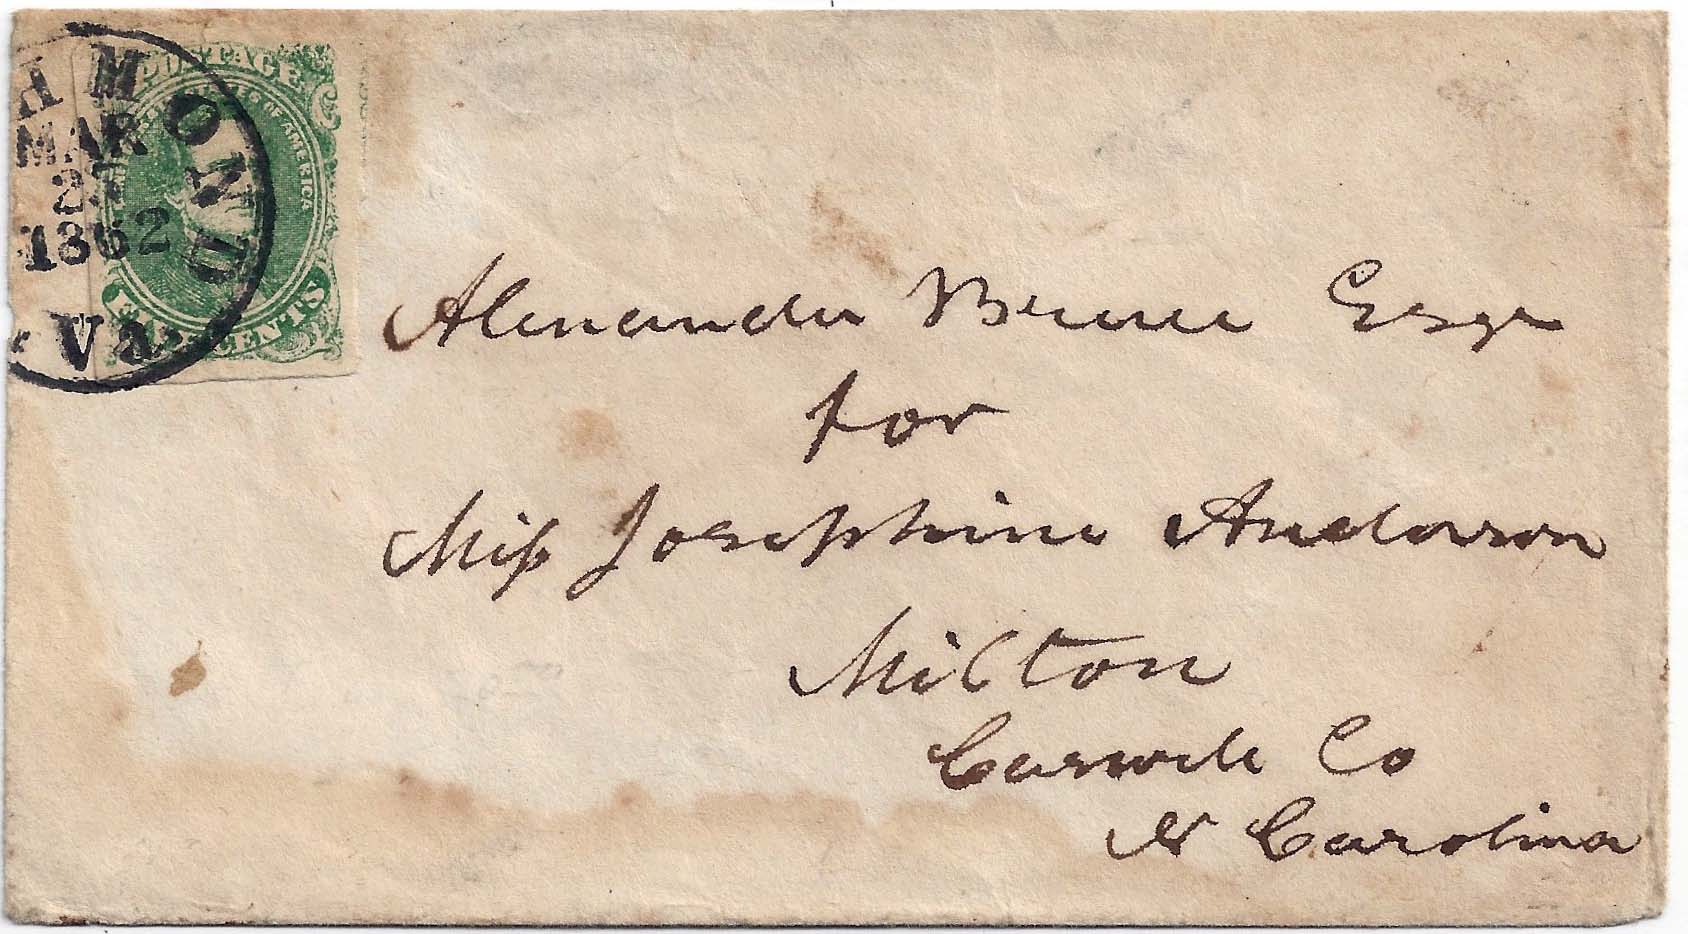 HMOND
MAR
27
1862
Va
POSTAGE
OF AMERICA
CENTS
Alexander Bruce Esqr
for
Miſs Josephine Anderson
Milton
Caswell Co
N Carolina